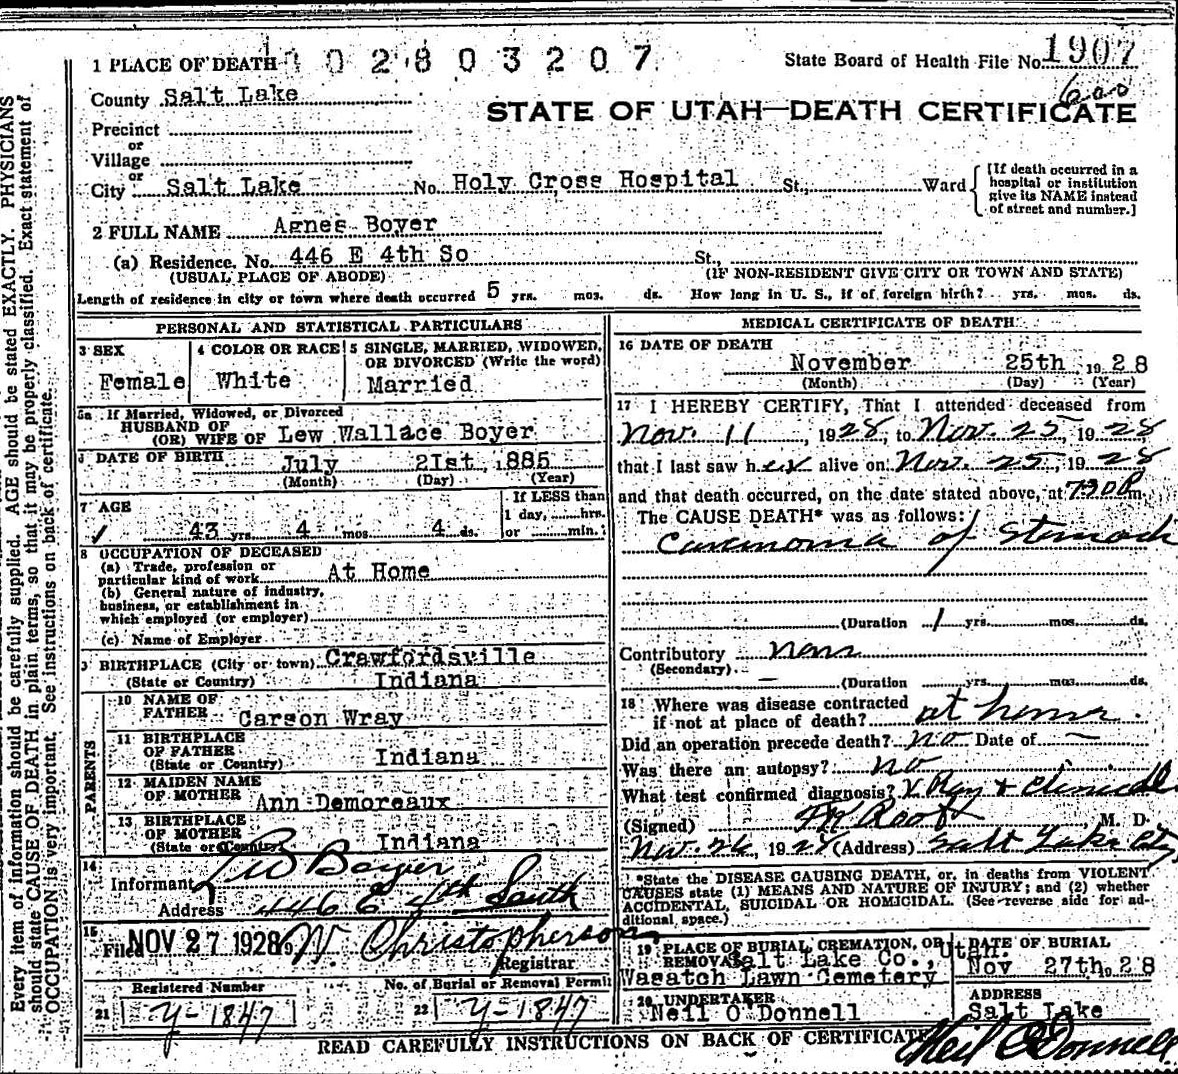 1 PLACE OF DEATH 102803207 State Board of Health File No. 1907
County Salt Lake
600
STATE OF UTAH—DEATH CERTIFICATE
Precinct
or
Village
or
City Salt Lake No. Holy Cross Hospital St., Ward [If death occurred in a hospital or institution give its NAME instead of street and number.]
2 FULL NAME Agnes Boyer
(a) Residence. No. 446 E 4th So St.,
(USUAL PLACE OF ABODE) (IF NON-RESIDENT GIVE CITY OR TOWN AND STATE)
Length of residence in city or town where death occurred 5 yrs. mos. ds. How long in U. S., if of foreign birth? yrs. mos. ds.
PERSONAL AND STATISTICAL PARTICULARS
3 SEX
Female
4 COLOR OR RACE
White
5 SINGLE, MARRIED, WIDOWED,
OR DIVORCED (Write the word)
Married
5a If Married, Widowed, or Divorced
HUSBAND OF
(OR) WIFE OF Lew Wallace Boyer
DATE OF BIRTH July 21st, 1885
(Month) (Day) (Year)
7 AGE
43 yrs. 4 mos. 4 ds.
If LESS than
1 day, hrs.
or min.
8 OCCUPATION OF DECEASED
(a) Trade, profession or
particular kind of work At Home
(b) General nature of industry,
business, or establishment in
which employed (or employer)
(c) Name of Employer
9 BIRTHPLACE (City or town) Crawfordsville
(State or Country) Indiana
PARENTS
10 NAME OF
FATHER Carson Wray
11 BIRTHPLACE
OF FATHER
(State or Country) Indiana
12 MAIDEN NAME
OF MOTHER Ann Demoreaux
13 BIRTHPLACE
OF MOTHER
(State or Country) Indiana
14
Informant L W Boyer
Address 446 E 4th South
15
Filed NOV 27 1928 W. Christopherson
Registrar
Registered Number
21 Y-1847
No. of Burial or Removal Permit
22 Y-1847
MEDICAL CERTIFICATE OF DEATH
16 DATE OF DEATH
November 25th, 1928
(Month) (Day) (Year)
17 I HEREBY CERTIFY, That I attended deceased from
Nov. 11, 1928, to Nov. 25, 1928
that I last saw her alive on Nov. 25, 1928
and that death occurred, on the date stated above, at 7:30 P.m.
The CAUSE DEATH* was as follows:
Carcinoma of Stomach
(Duration 1 yrs. mos. ds.
Contributory none
(Secondary)
(Duration yrs. mos. ds.
18 Where was disease contracted
if not at place of death? at home.
Did an operation precede death? no Date of —
Was there an autopsy? no
What test confirmed diagnosis? X Ray & clinical
(Signed) M. D.
Nov. 26, 1928 (Address) Salt Lake City
*State the DISEASE CAUSING DEATH, or, in deaths from VIOLENT
CAUSES state (1) MEANS AND NATURE OF INJURY; and (2) whether
ACCIDENTAL, SUICIDAL OR HOMICIDAL. (See reverse side for ad-
ditional space.)
19 PLACE OF BURIAL, CREMATION, OR
REMOVAL Salt Lake Co., Utah.
Wasatch Lawn Cemetery
DATE OF BURIAL
Nov 27th, 28
20 UNDERTAKER
Neil O'Donnell
ADDRESS
Salt Lake
READ CAREFULLY INSTRUCTIONS ON BACK OF CERTIFICATE
Neil O'Donnell
Every item of information should be carefully supplied. AGE should be stated EXACTLY. PHYSICIANS
should state CAUSE OF DEATH in plain terms, so that it may be properly classified. Exact statement of
OCCUPATION is very important. See instructions on back of certificate.